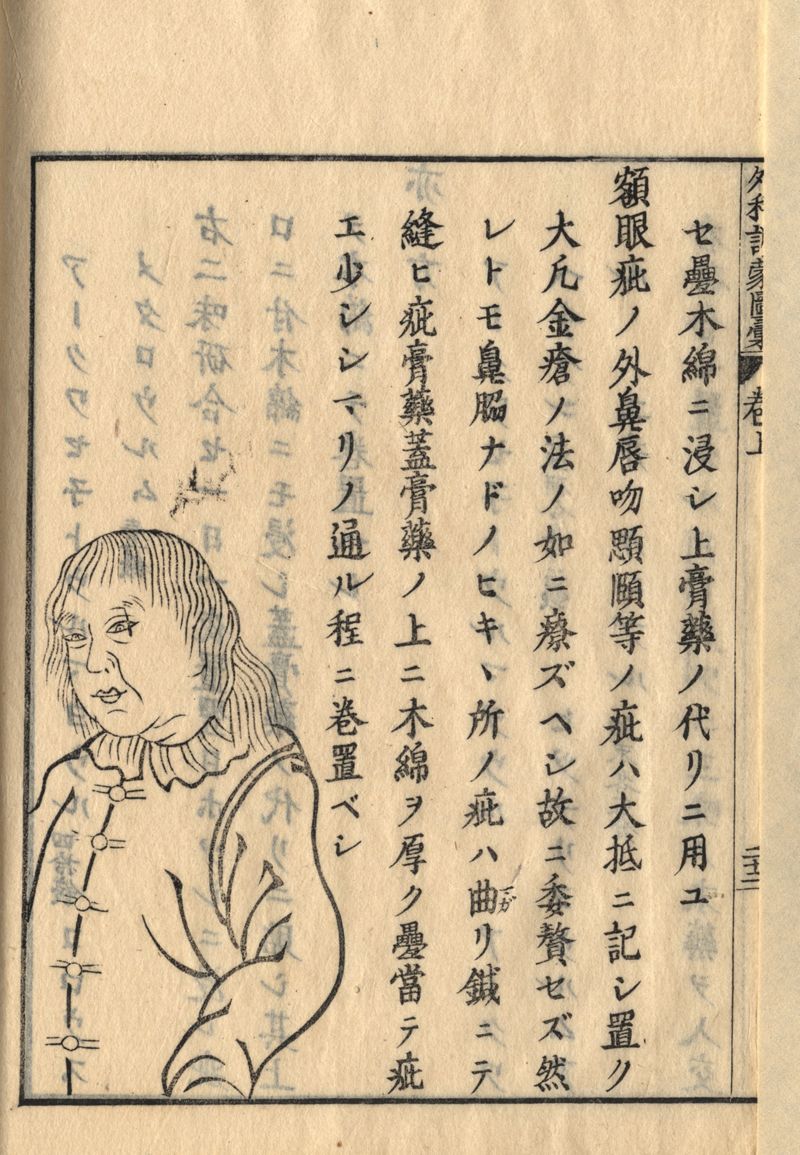 外科訓蒙圖彙 卷上
セ疊木綿ニ浸シ上膏藥ノ代リニ用ユ
額眼疵ノ外鼻唇吻顋頤等ノ疵ハ大抵ニ記シ置ク
大凡金瘡ノ法ノ如ニ療ズヘシ故ニ委贅セズ然
レトモ鼻脇ナドノヒキヽ所ノ疵ハ曲マガリ鍼ニテ
縫ヒ疵膏藥蓋膏藥ノ上ニ木綿ヲ厚ク疊當テ疵
エ少シシマリノ通ル程ニ卷置ベシ